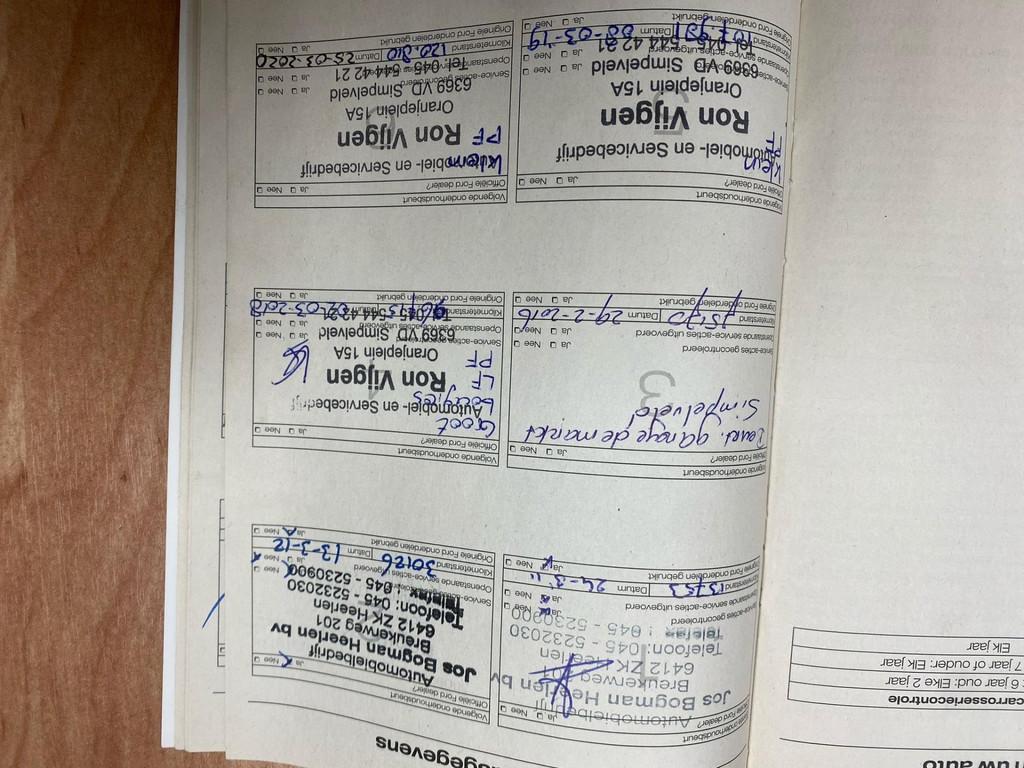 n uw auto
carrosseriecontrole
6 jaar oud: Elke 2 jaar
7 jaar of ouder: Elk jaar
Elk jaar
gegevens
onderhoudsbeurt
Ford dealer? Ja Nee
Automobielbedrijf
Jos Bogman Heerlen bv
Breukerweg
6412 ZK Heerlen
Telefoon: 045 - 5232030
Telefax : 045 - 5230900
service-acties gecontroleerd
service-acties uitgevoerd Ja Nee
13753 Datum 24-3-11
onderdelen Ford gebruikt Ja Nee
Volgende onderhoudsbeurt
Officiële Ford dealer? Ja Nee
Automobielbedrijf
Jos Bogman Heerlen bv
Breukerweg 201
6412 ZK Heerlen
Telefoon: 045 - 5232030
Telefax : 045 - 5230900
Openstaande service-acties uitgevoerd Ja Nee
Kilometerstand 30126 Datum 13-3-12
Originele Ford onderdelen gebruikt Ja Nee
onderhoudsbeurt
Ford dealer? Ja Nee
garage de markt
Simpelveld
3
service-acties gecontroleerd Ja Nee
service-acties uitgevoerd Ja Nee
Datum 29-2-2016
Ford onderdelen gebruikt Ja Nee
Volgende onderhoudsbeurt
Officiële Ford dealer? Ja Nee
Groot
Automobiel- en Servicebedrijf
bougies
Ron Vijgen
LF
PF
Oranjeplein 15A
6369 VD Simpelveld
Service-acties gecontroleerd Ja Nee
Openstaande service-acties uitgevoerd Ja Nee
Tel. 045 - 544 42 21
Kilometerstand Datum 02-03-2018
Originele Ford onderdelen gebruikt Ja Nee
Volgende onderhoudsbeurt
Officiële Ford dealer? Ja Nee
Klein
Automobiel- en Servicebedrijf
PF
Ron Vijgen
Oranjeplein 15A
6369 VD Simpelveld
Service-acties gecontroleerd Ja Nee
Openstaande service-acties uitgevoerd Ja Nee
Tel. 045 - 544 42 21
Kilometerstand Datum 08-03-'19
Originele Ford onderdelen gebruikt Ja Nee
Volgende onderhoudsbeurt
Officiële Ford dealer? Ja Nee
Klein
Automobiel- en Servicebedrijf
PF
Ron Vijgen
Oranjeplein 15A
6369 VD Simpelveld
Service-acties gecontroleerd Ja Nee
Tel. 045 - 544 42 21
Openstaande service-acties uitgevoerd Ja Nee
Kilometerstand 120.810 Datum 25-03-2020
Originele Ford onderdelen gebruikt Ja Nee